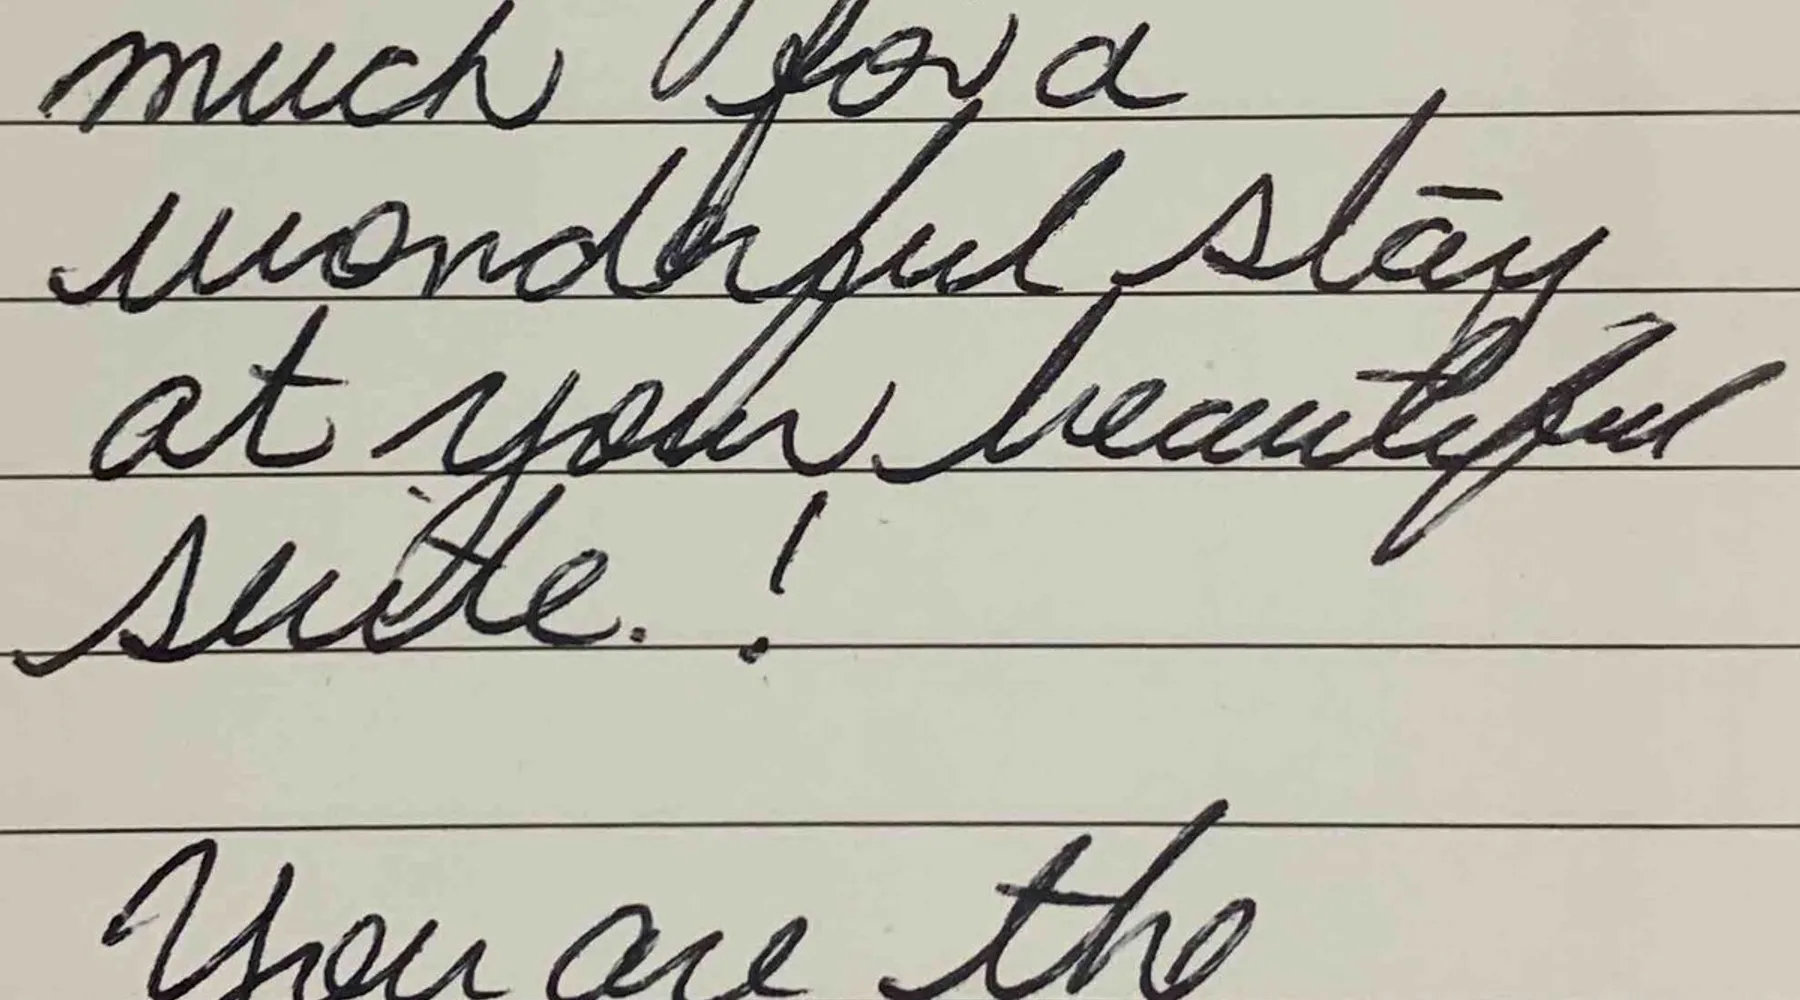 much for a
wonderful stay
at your beautiful
suite. !
You are the